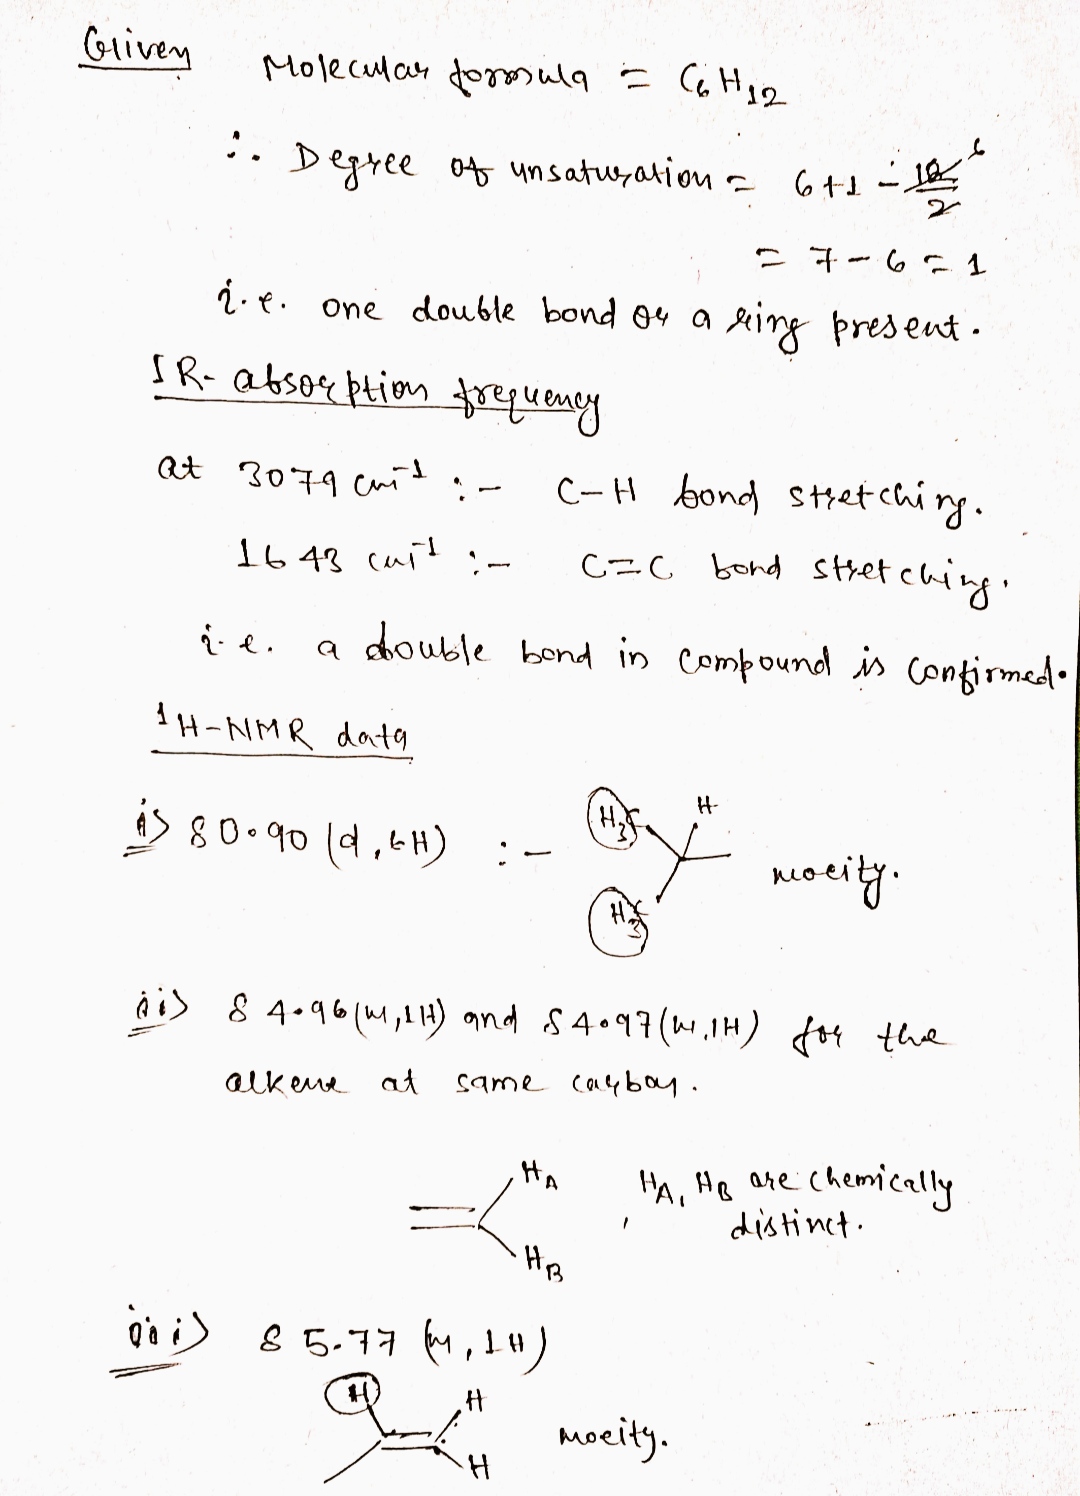 Given Molecular formula = C6H12
∴ Degree of unsaturation = 6+1 - 12/2 6
= 7-6 = 1
i.e. one double bond or a ring present.
IR- absorption frequency
at 3079 cm-1 :- C-H bond stretching.
1643 cm-1 :- C=C bond stretching.
i.e. a double bond in compound is confirmed.
1H-NMR data
i) δ0.90 (d, 6H) :- H3C H moeity.
H3C
ii) δ 4.96 (m, 1H) and δ 4.97 (m, 1H) for the
alkene at same carbon.
HA HA, HB are chemically
distinct.
HB
iii) δ 5.77 (m, 1H)
H H
moeity.
H